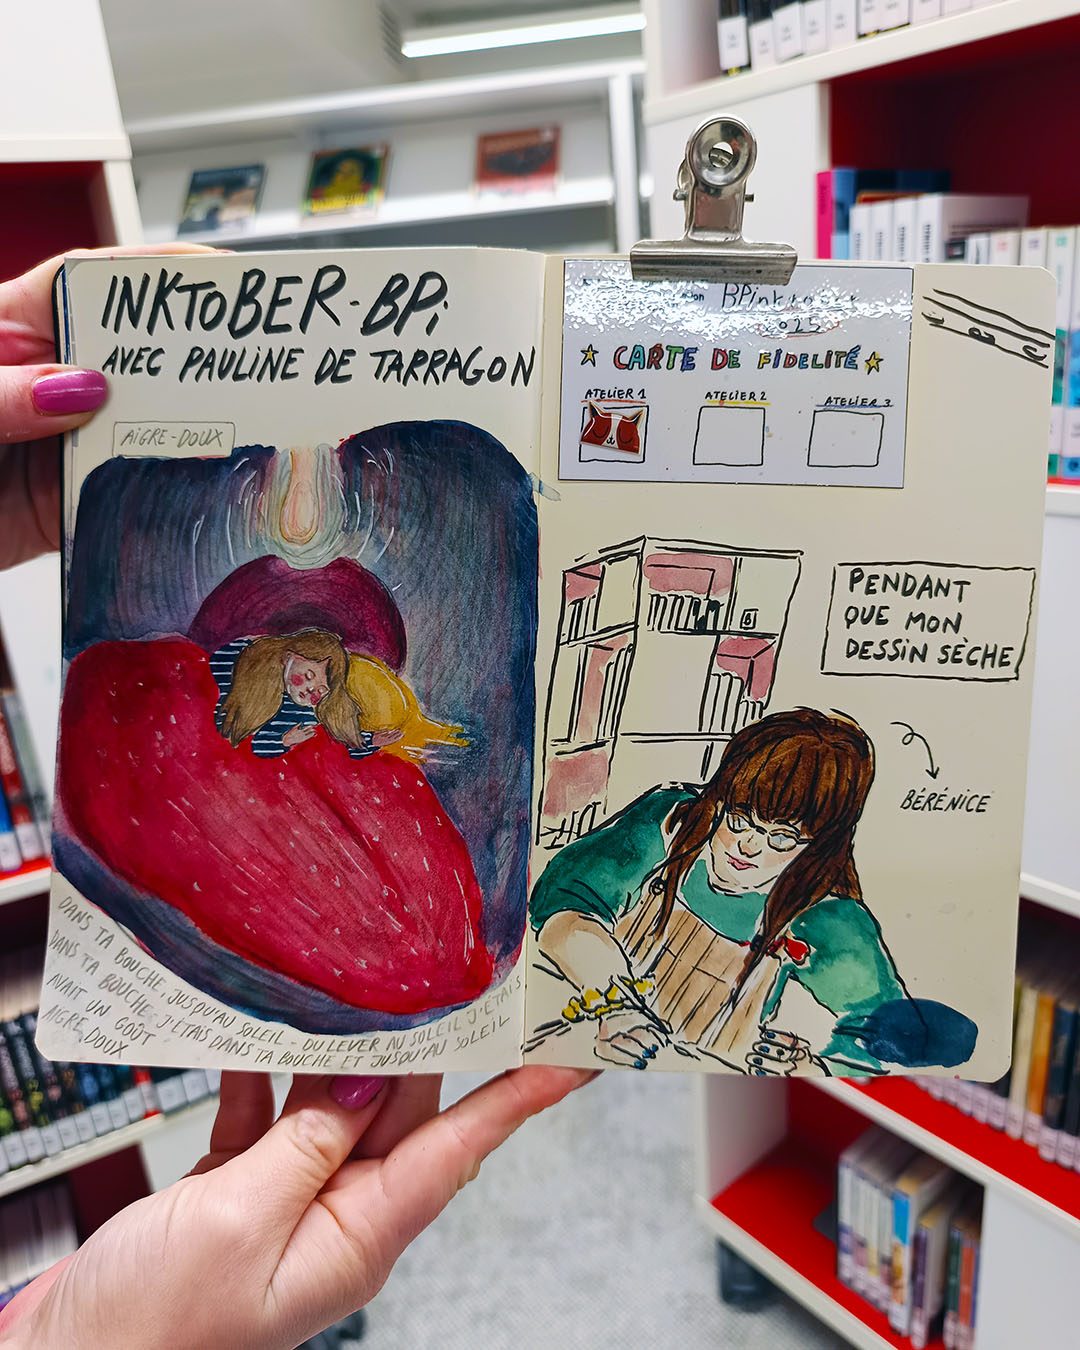 INKTOBER-BPi
AVEC PAULINE DE TARRAGON
AIGRE-DOUX
DANS TA BOUCHE, JUSQU'AU SOLEIL - DU LEVER AU SOLEIL J'ÉTAIS
DANS TA BOUCHE. J'ÉTAIS DANS TA BOUCHE ET JUSQU'AU SOLEIL
AVAIT UN GOÛT
AIGRE DOUX
2025
CARTE DE FIDELITÉ
ATELIER 1 ATELIER 2 ATELIER 3
PENDANT
QUE MON
DESSIN SÈCHE
BÉRÉNICE